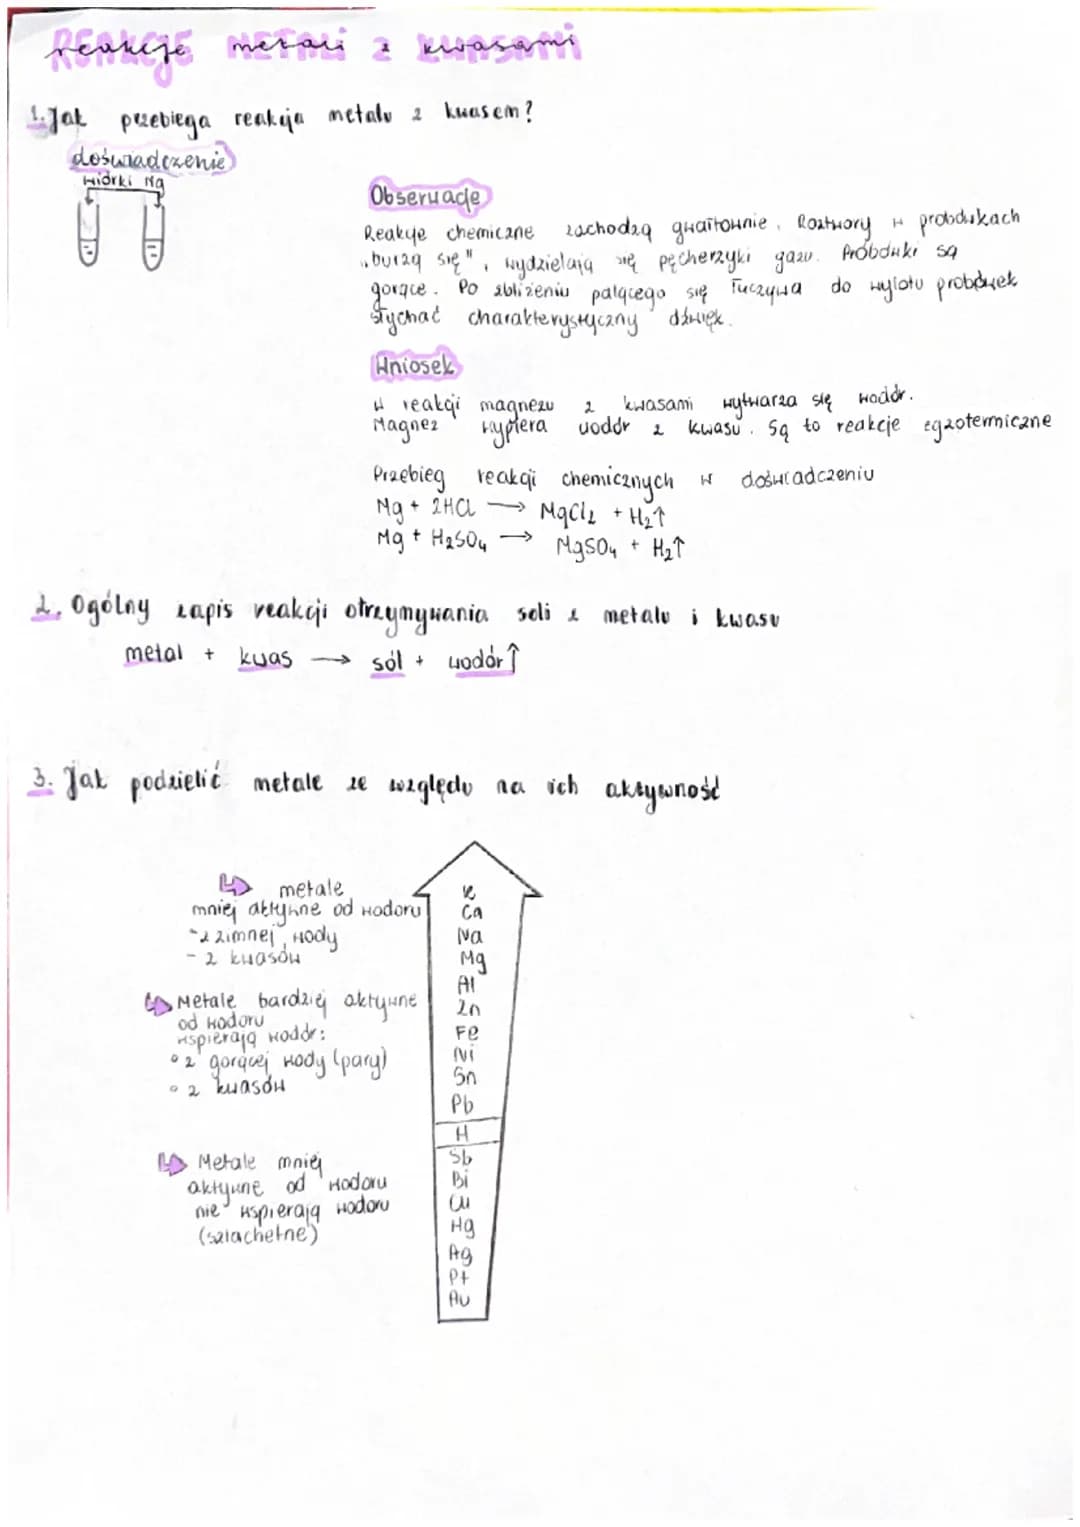 reakcje metali z kwasami
1. Jak przebiega reakcja metalu z kwasem?
doświadczenie
wiórki Mg
Obserwacje
Reakcje chemiczne zachodzą gwałtownie. Roztwory w probówkach
"burzą się", wydzielają się pęcherzyki gazu. Probówki są
gorące. Po zbliżeniu palącego się łuczywa do wylotu probówek
słychać charakterystyczny dźwięk.
Wniosek
W reakcji magnezu z kwasami wytwarza się wodór.
Magnez wypiera wodór z kwasu. Są to reakcje egzotermiczne
Przebieg reakcji chemicznych w doświadczeniu
Mg + 2HCl → MgCl₂ + H₂↑
Mg + H₂SO₄ → MgSO₄ + H₂↑
2. Ogólny zapis reakcji otrzymywania soli z metalu i kwasu
metal + kwas → sól + wodór↑
3. Jak podzielić metale ze względu na ich aktywność
metale
mniej aktywne od wodoru
- z zimnej wody
- z kwasów
Metale bardziej aktywne
od wodoru
wspierają wodór:
° z gorącej wody (pary)
° z kwasów
Metale mniej
aktywne od wodoru
nie wspierają wodoru
(szlachetne)
K
Ca
Na
Mg
Al
Zn
Fe
Ni
Sn
Pb
H
Sb
Bi
Cu
Hg
Ag
Pt
Au